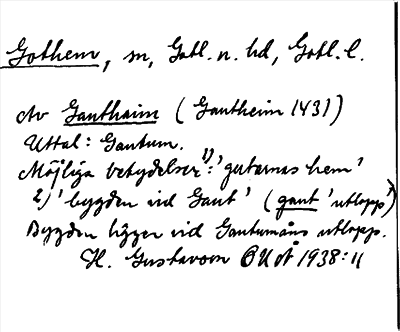 Gothem, sn, Gotl. n. hd, Gotl. l.
Av Gauthaim (Gautheim 1431)
Uttal: Gautum.
Möjliga betydelser: 1) 'gutarnas hem'
2) 'bygden vid Gaut' (gaut 'utlopp')
Bygden ligger vid Gautumåns utlopp.
H. Gustavson GUÅ 1938:11